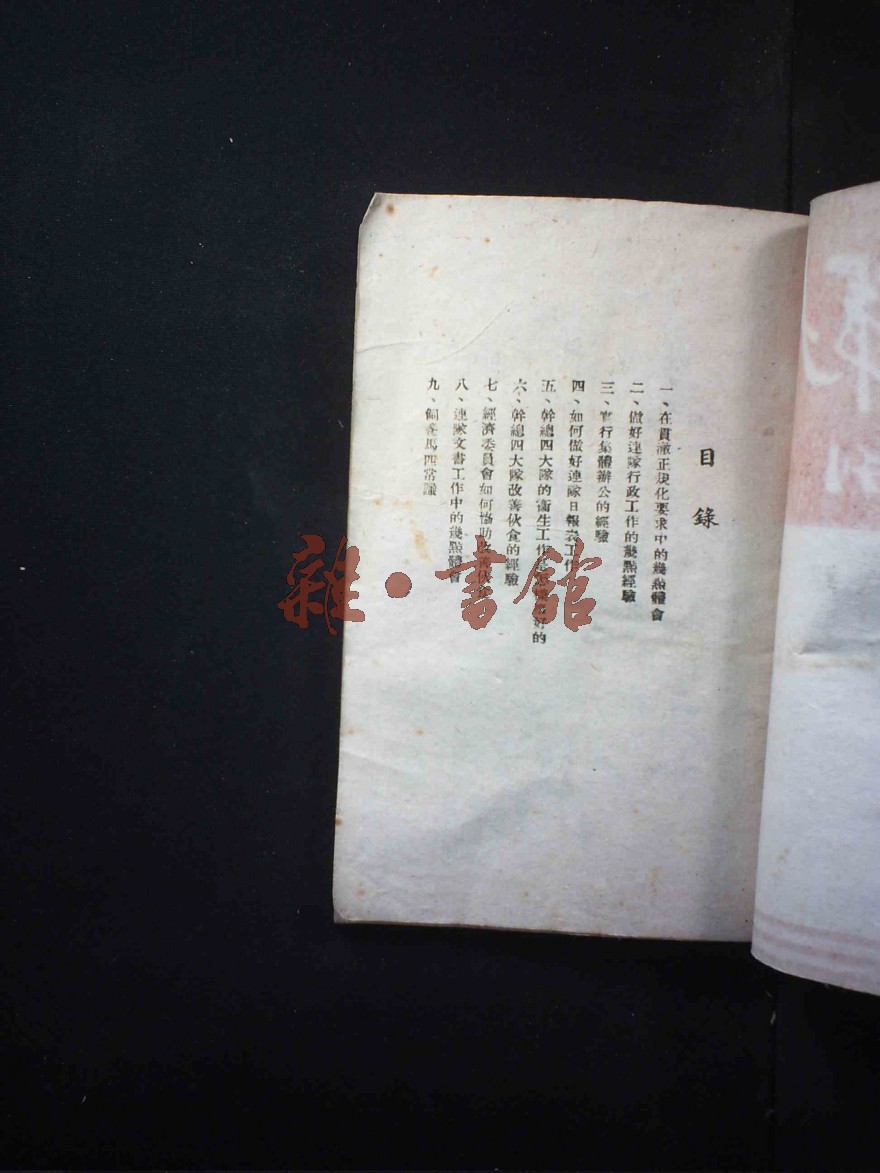 目錄
一、在貫澈正規化要求中的幾點體會
二、做好連隊行政工作的幾點經驗
三、實行集體辦公的經驗
四、如何做好連隊日報表工作
五、幹總四大隊的衛生工作 好的
六、幹總四大隊改善伙食的經驗
七、經濟委員會如何協助改善伙食
八、連隊文書工作中的幾點體會
九、飼養馬匹常識
雜·書館